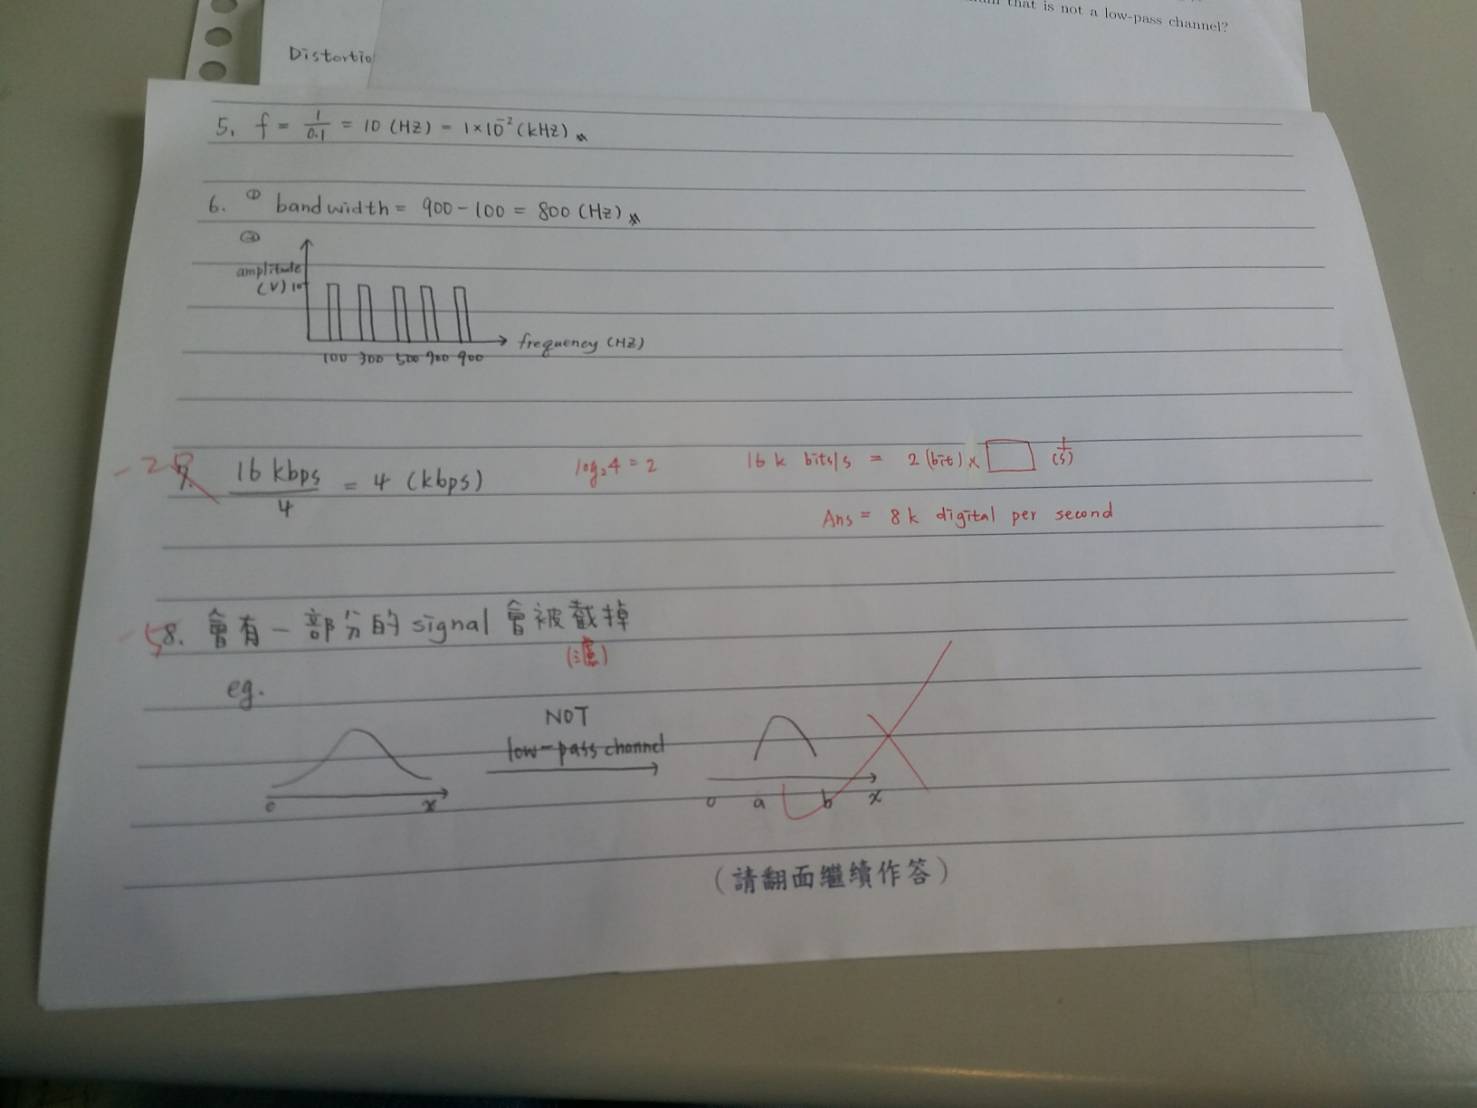 that is not a low-pass channel?
Distortio
5. f = 1/0.1 = 10 (HZ) = 1×10⁻² (kHZ)
6. ① bandwidth = 900 - 100 = 800 (HZ)
②
amplitude
(V) 10
frequency (HZ)
100 300 500 700 900
-2 7. 16 kbps/4 = 4 (kbps) log₂4 = 2 16 k bits/s = 2 (bit) × □ (1/s)
Ans = 8k digital per second
-5 8. 會有一部分的 signal 會被截掉
(濾)
eg.
NOT
low-pass channel
0 x
0 a b x
(請翻面繼續作答)